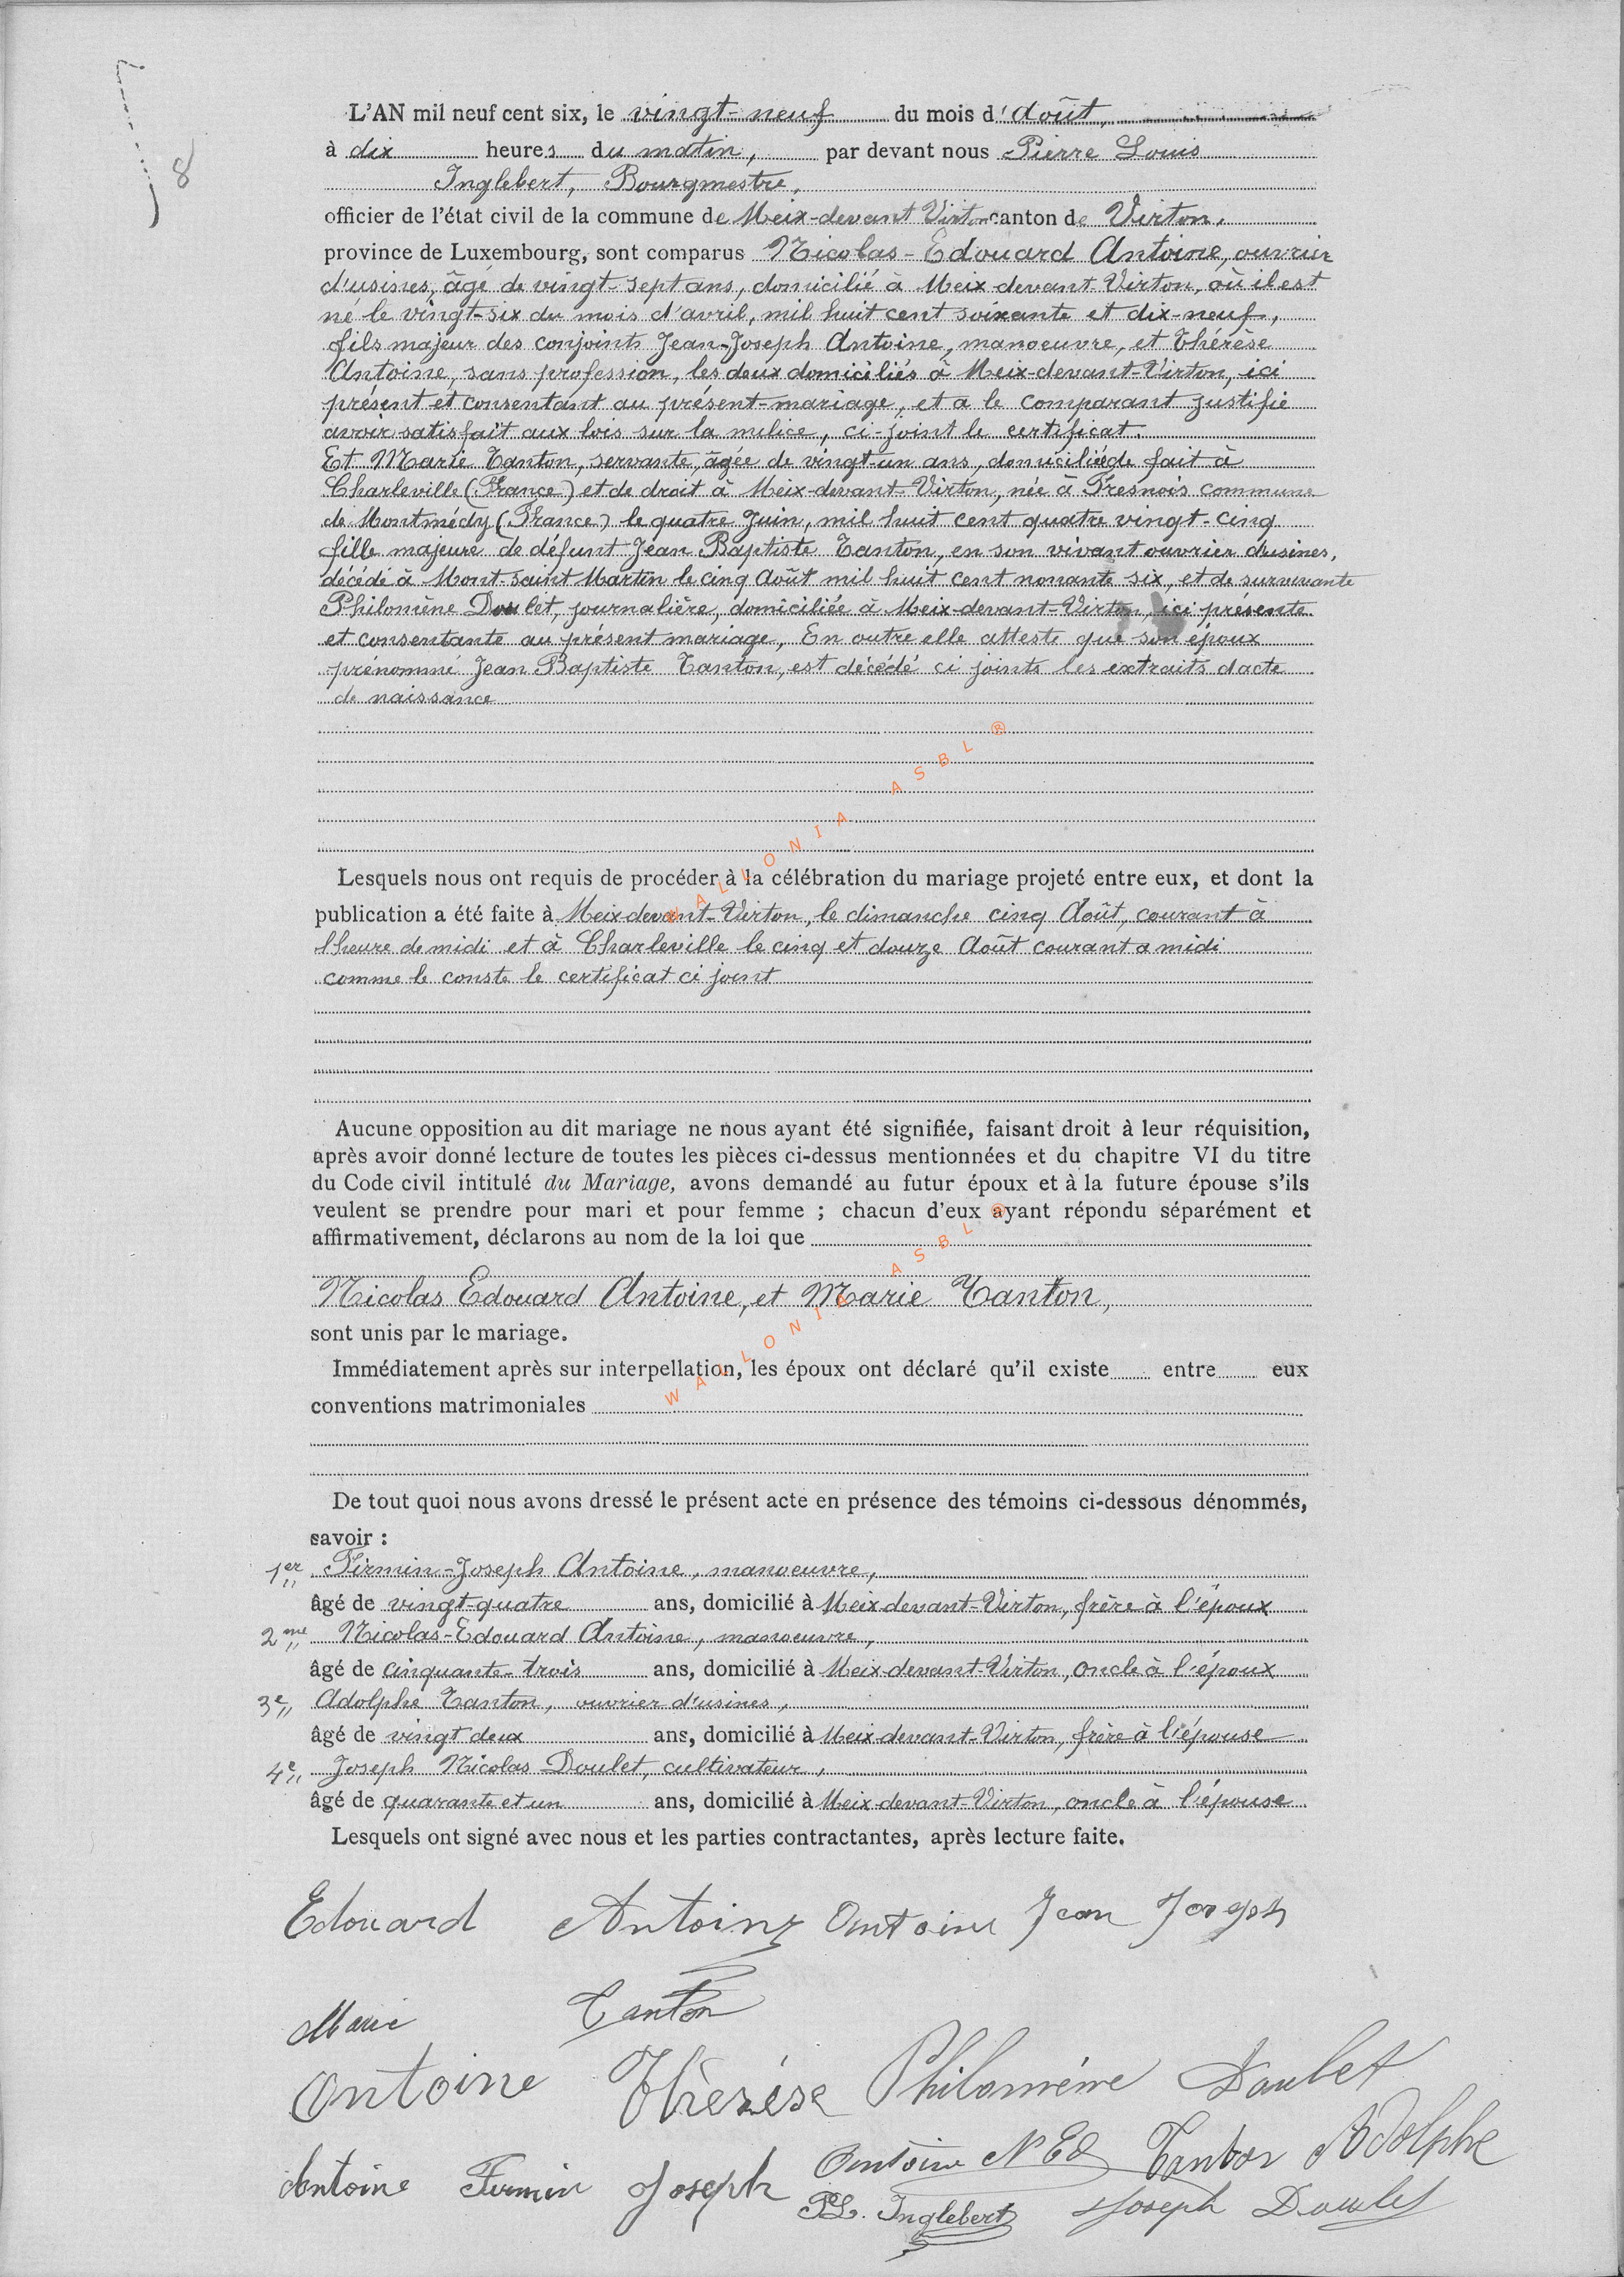 8
L'AN mil neuf cent six, le vingt-neuf du mois d'août,
à dix heures du matin, par devant nous Pierre Louis
Inglebert, Bourgmestre,
officier de l'état civil de la commune de Meix-devant Virton canton de Virton,
province de Luxembourg, sont comparus Nicolas-Edouard Antoine, ouvrier
d'usines, âgé de vingt-sept ans, domicilié à Meix-devant-Virton, où il est
né le vingt-six du mois d'avril, mil huit cent soixante et dix-neuf,
fils majeur des conjoints Jean-Joseph Antoine, manoeuvre, et Thérèse
Antoine, sans profession, les deux domiciliés à Meix-devant-Virton, ici
présent et consentant au présent-mariage, et a le comparant justifié
avoir satisfait aux lois sur la milice, ci-joint le certificat.
Et Marie Tanton, servante, âgée de vingt-un ans, domiciliée de fait à
Charleville (France) et de droit à Meix-devant-Virton, née à Fresnois commune
de Montmédy (France) le quatre Juin, mil huit cent quatre vingt-cinq
fille majeure de défunt Jean Baptiste Tanton, en son vivant ouvrier d'usines,
décédé à Mont-Saint Martin le cinq Août mil huit cent nonante six, et de survivante
Philomène Doulet, journalière, domiciliée à Meix-devant-Virton, ici présente
et consentante au présent mariage, En outre elle atteste que son époux
prénommé Jean Baptiste Tanton, est décédé ci joints les extraits d'acte
de naissance
Lesquels nous ont requis de procéder à la célébration du mariage projeté entre eux, et dont la
publication a été faite à Meix devant-Virton, le dimanche cinq Août, courant à
l'heure de midi et à Charleville le cinq et douze Août courant a midi
comme le conste le certificat ci joint
WALLONIA ASBL ®
Aucune opposition au dit mariage ne nous ayant été signifiée, faisant droit à leur réquisition,
après avoir donné lecture de toutes les pièces ci-dessus mentionnées et du chapitre VI du titre
du Code civil intitulé du Mariage, avons demandé au futur époux et à la future épouse s'ils
veulent se prendre pour mari et pour femme ; chacun d'eux ayant répondu séparément et
affirmativement, déclarons au nom de la loi que
Nicolas Edouard Antoine, et Marie Tanton,
sont unis par le mariage.
Immédiatement après sur interpellation, les époux ont déclaré qu'il existe entre eux
conventions matrimoniales
WALLONIA ASBL ®
De tout quoi nous avons dressé le présent acte en présence des témoins ci-dessous dénommés,
savoir :
1er Firmin-Joseph Antoine, manoeuvre,
âgé de vingt-quatre ans, domicilié à Meix devant-Virton, frère à l'époux
2me Nicolas-Edouard Antoine, manoeuvre,
âgé de cinquante-trois ans, domicilié à Meix-devant-Virton, oncle à l'époux
3e Adolphe Tanton, ouvrier d'usines,
âgé de vingt deux ans, domicilié à Meix devant-Virton, frère à l'épouse
4e Joseph Nicolas Doulet, cultivateur,
âgé de quarante et un ans, domicilié à Meix-devant-Virton, oncle à l'épouse
Lesquels ont signé avec nous et les parties contractantes, après lecture faite.
Edouard Antoine Antoine Jean Joseph
Marie Tanton
Antoine Thérèse Philomène Doulet
Antoine Firmin Joseph Antoine N Ed Tanton Adolphe
PL. Inglebert Joseph Doulet